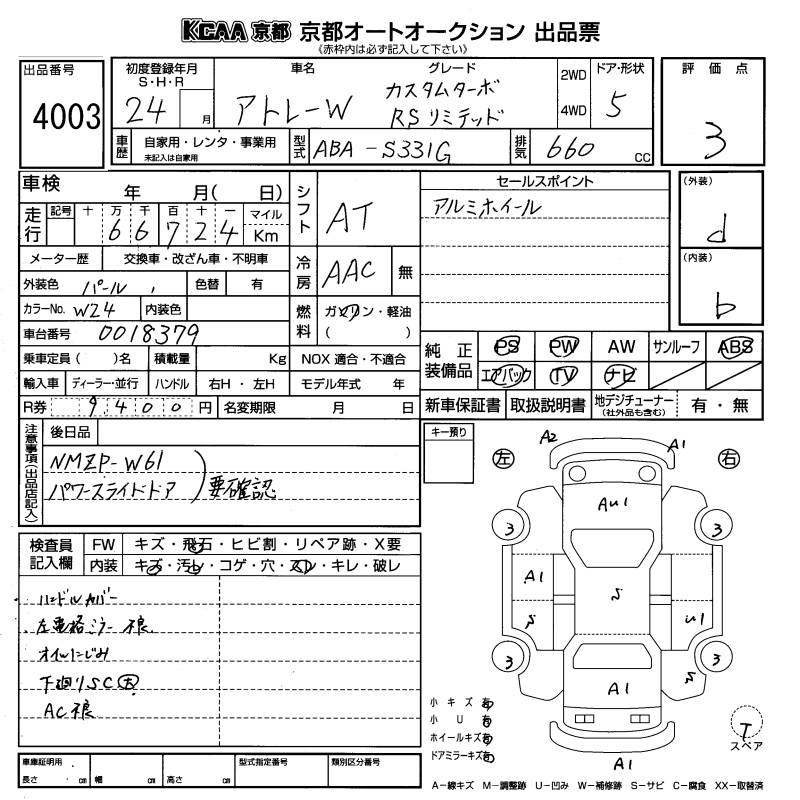 KCAA 京都 京都オートオークション 出品票
《赤枠内は必ず記入して下さい》
出品番号
4003
初度登録年月
S・H・R
24 月
車名
アトレーW
グレード
カスタムターボ
RSリミテッド
2WD
4WD
ドア・形状
5
評価点
3
車歴
自家用・レンタ・事業用
未記入は自家用
型式
ABA-S331G
排気
660 cc
車検 年 月( 日)
走行
記号 十 万 千 百 十 一 マイル
6 6 7 2 4 Km
メーター歴 交換車・改ざん車・不明車
外装色 パール 色替 有
カラーNo. W24 内装色
車台番号 0018379
乗車定員( )名 積載量 Kg
輸入車 ディーラー・並行 ハンドル 右H・左H
R券 9400円 名変期限 月 日
シフト AT
冷房 AAC 無
燃料 ガソリン・軽油
( )
NOX 適合・不適合
モデル年式 年
セールスポイント
アルミホイール
(外装)
d
(内装)
b
純正装備品
PS PW AW サンルーフ ABS
エアバック TV ナビ
新車保証書 取扱説明書 地デジチューナー
(社外品も含む)
有・無
注意事項(出品店記入)
後日品
NMZP-W61
パワースライドドア
要確認
キー預り
検査員記入欄
FW キズ・飛石・ヒビ割・リペア跡・X要
内装 キズ・汚レ・コゲ・穴・スレ・キレ・破レ
ハンドルカバー
左電格ミラー不良
オイルにじみ
下廻りSC
AC不良
左
右
A2
A1
AU1
3
3
A1
S
S
U1
3
3
S
A1
A1
小キズ有
小U有
ホイールキズ有
ドアミラーキズ有
T
スペア
車庫証明用
長さ cm 幅 cm 高さ cm
型式指定番号
類別区分番号
A-線キズ M-調整跡 U-凹み W-補修跡 S-サビ C-腐食 XX-取替済